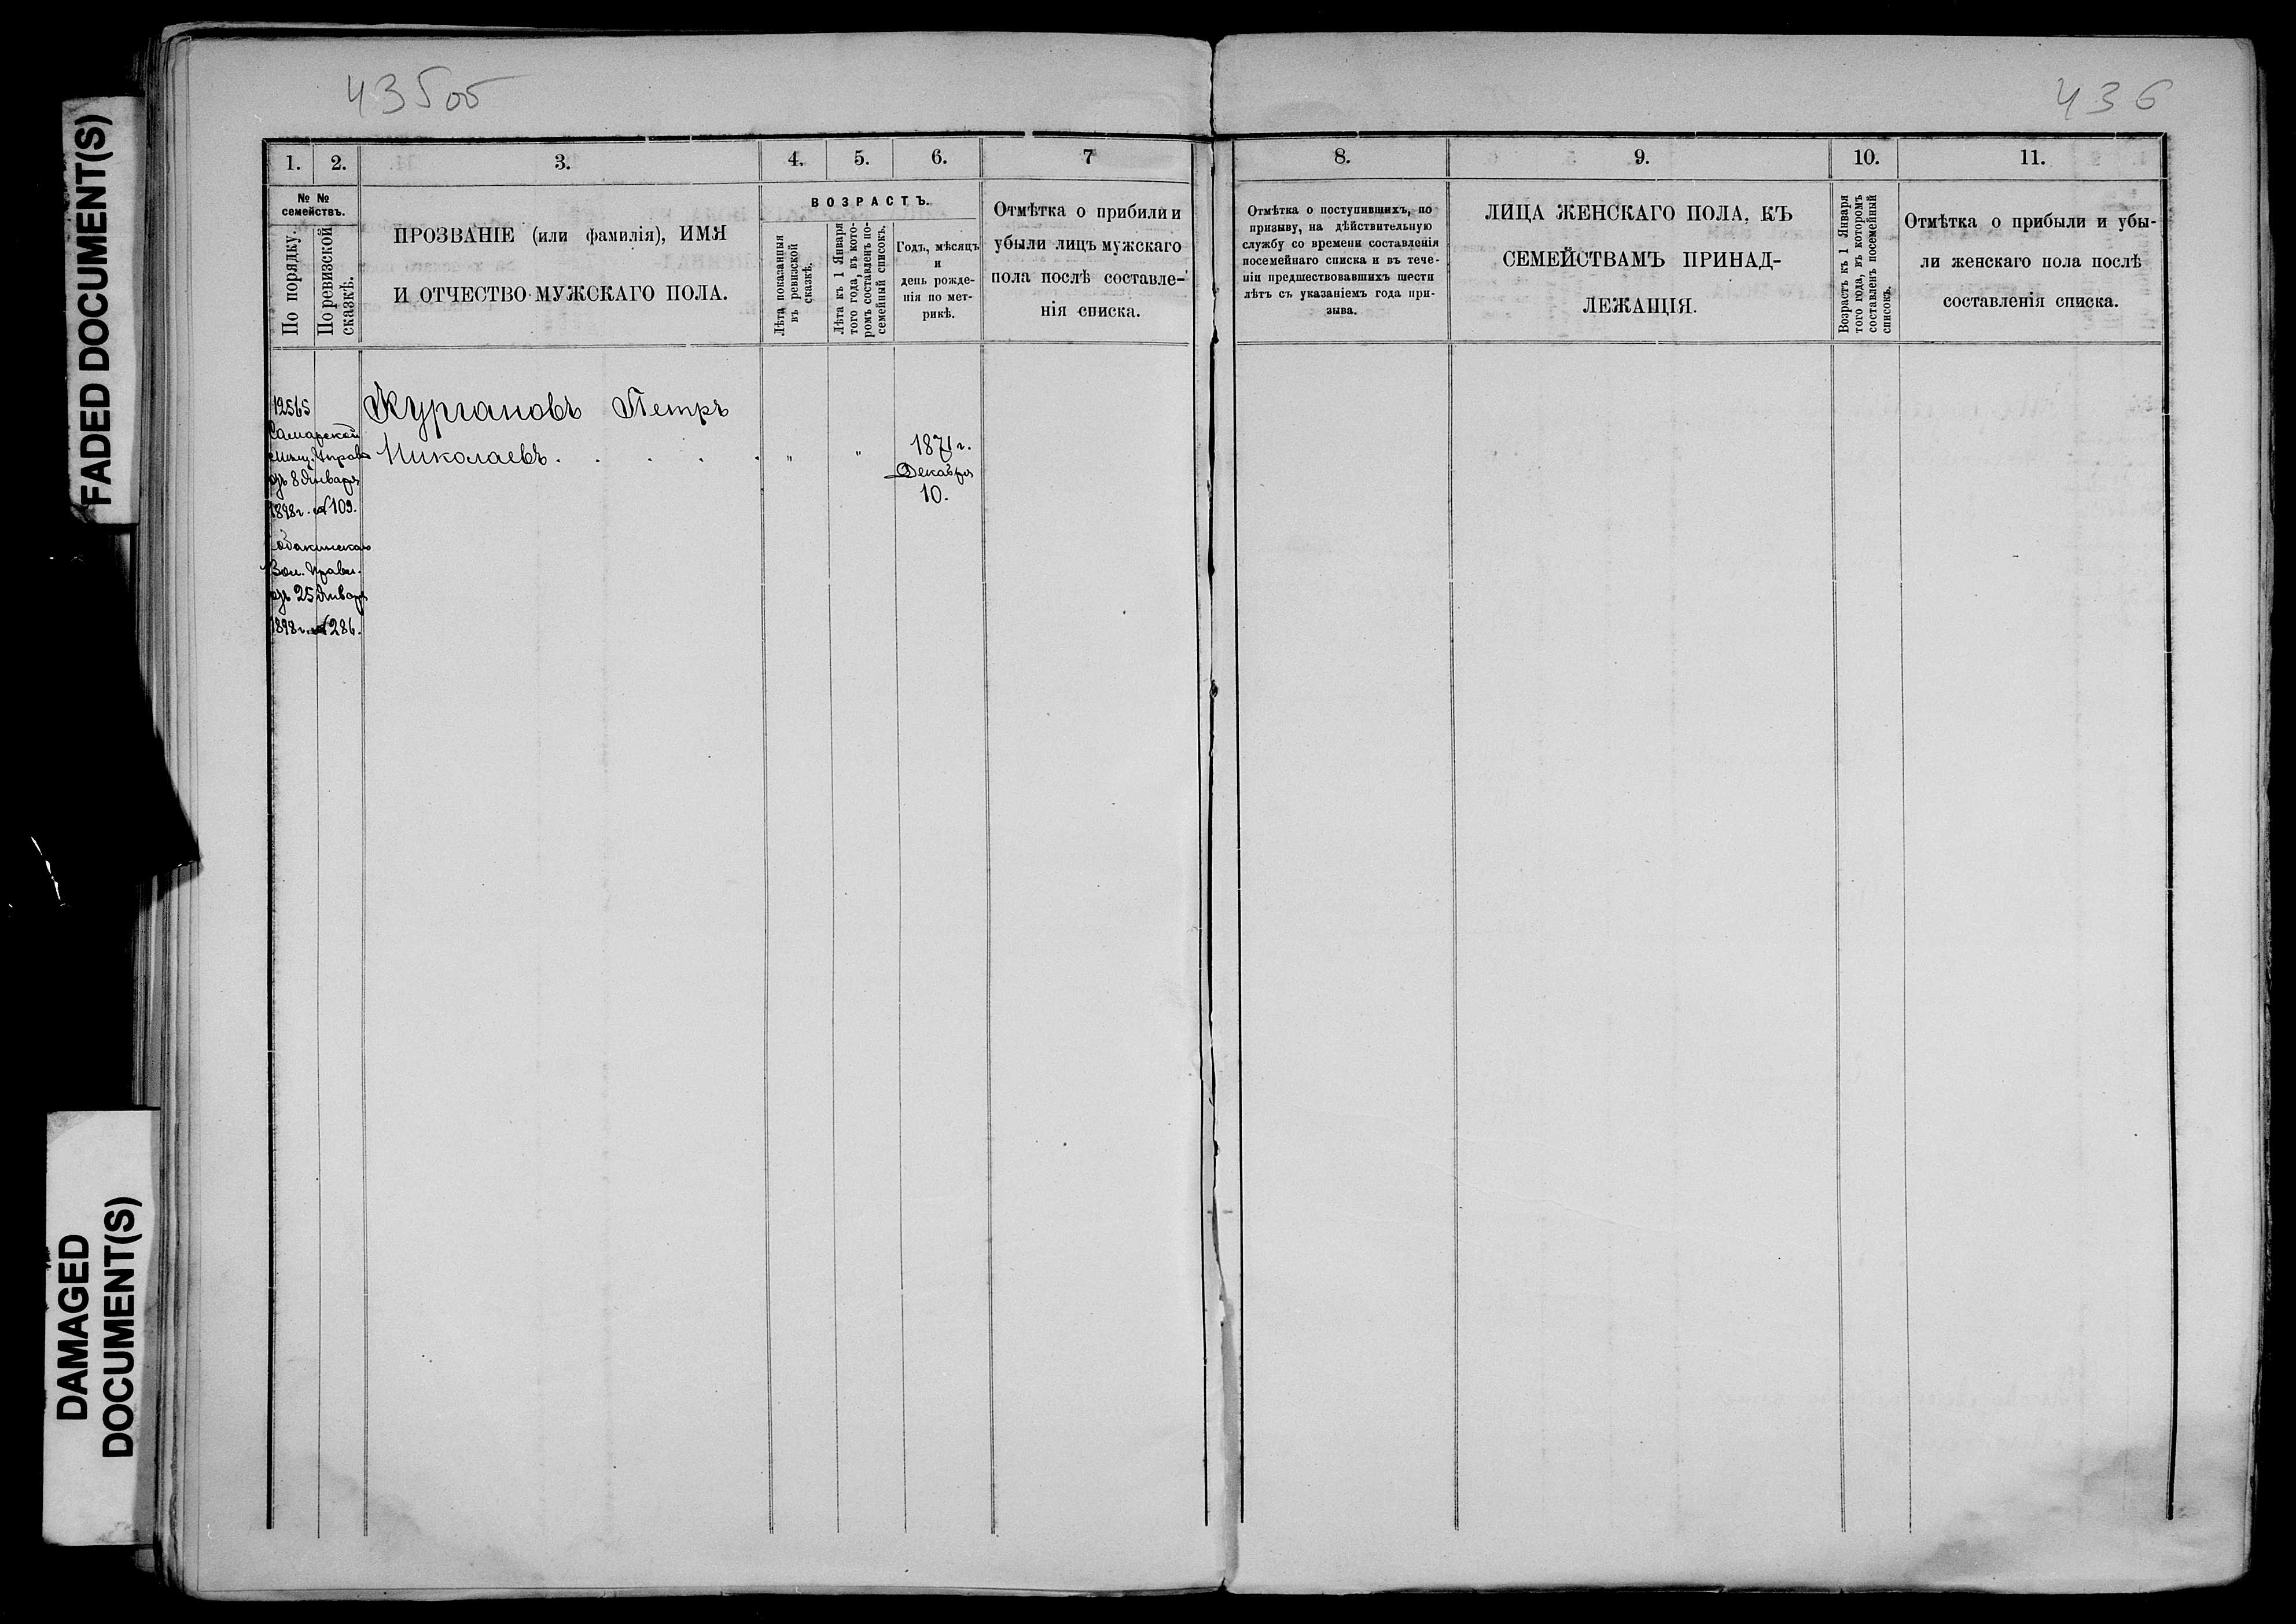 FADED DOCUMENT(S)
DAMAGED
DOCUMENT(S)
435об
1.
2.
3.
4.
5.
6.
7
№ №
семействъ.
По порядку.
По ревизской
сказкѣ.
ПРОЗВАНІЕ (или фамилія), ИМЯ
И ОТЧЕСТВО МУЖСКАГО ПОЛА.
ВОЗРАСТЪ.
Лѣта показанія
въ ревизской
сказкѣ.
Лѣта къ 1 Января
того года, въ кото-
ромъ составленъ по-
семейный списокъ.
Годъ, мѣсяцъ
и
день рожде-
нія по мет-
рикѣ.
Отмѣтка о прибили и
убыли лицъ мужскаго
пола послѣ составле-
нія списка.
12565
Самарской
Мѣщ. Управы
отъ 8 Января
1898 г. № 109.
Вол. Правл.
отъ 25 Января
1898 г. № 286.
Кургановъ Петръ
Николаевъ. . . . . " "
1871 г.
Декабря
10.
436
8.
9.
10.
11.
Отмѣтка о поступившихъ, по
призыву, на дѣйствительную
службу со времени составленія
посемейнаго списка и въ тече-
ніи предшествовавшихъ шести
лѣтъ съ указаніемъ года при-
зыва.
ЛИЦА ЖЕНСКАГО ПОЛА, КЪ
СЕМЕЙСТВАМЪ ПРИНАД-
ЛЕЖАЩІЯ.
Возрастъ къ 1 Января
того года, въ которомъ
составленъ посемейный
списокъ.
Отмѣтка о прибыли и убы-
ли женскаго пола послѣ
составленія списка.